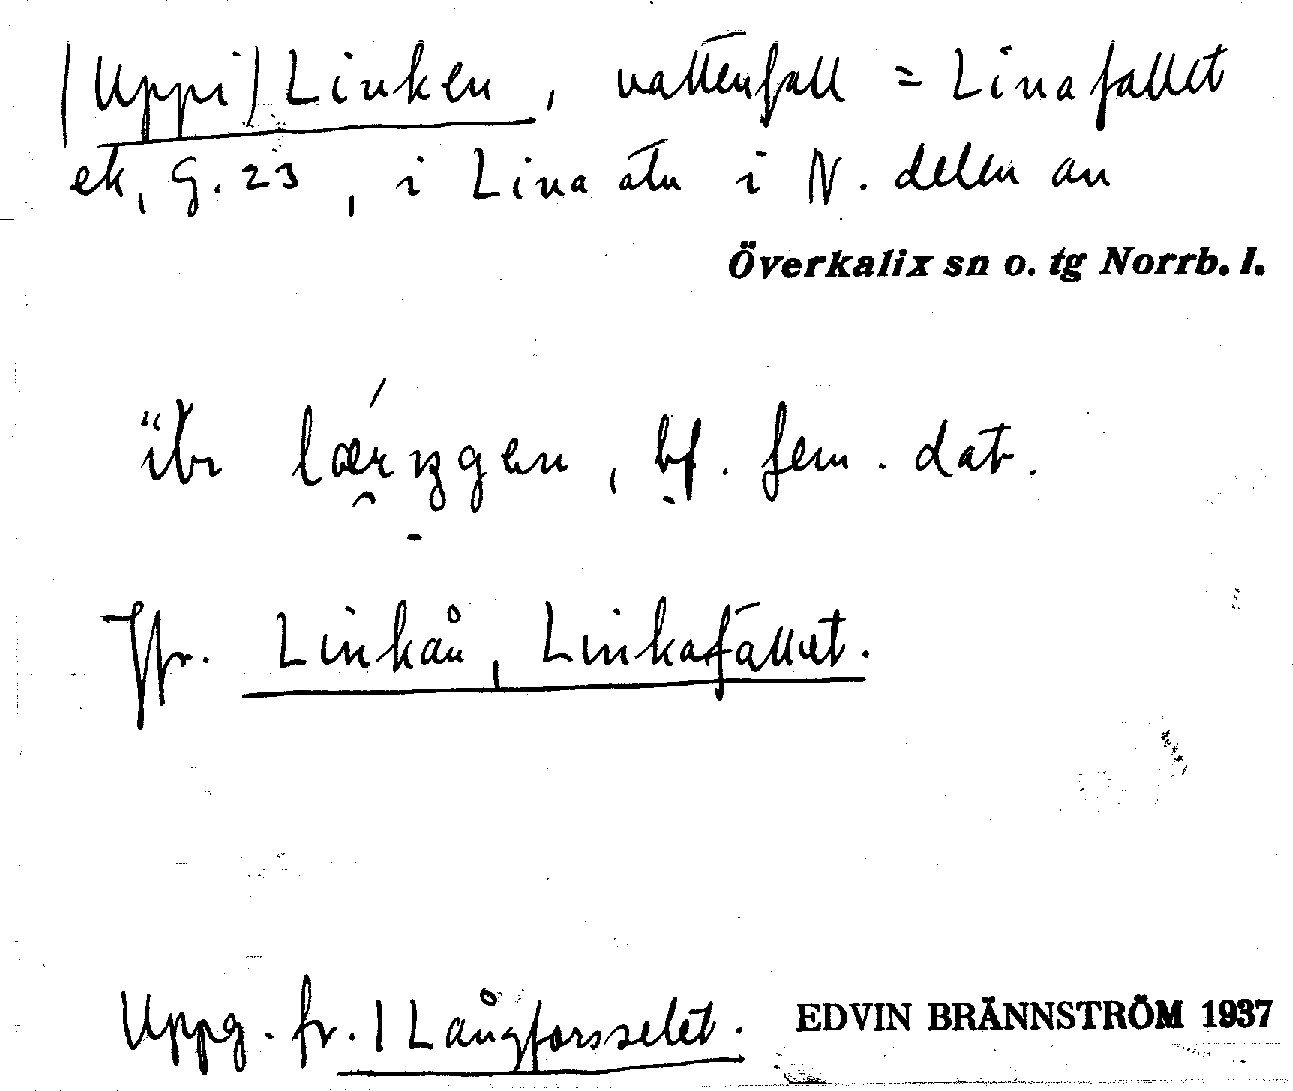 (Uppi) Linken, vattenfall = Linafallet
ek, G. 23, i Lina älv i N. delen av
Överkalix sn o. tg Norrb. l.
lǽrŋgen, bf. fem. dat.
Jfr. Linkån, Linkafallet.
Uppg. fr. Långforsselet. EDVIN BRÄNNSTRÖM 1937